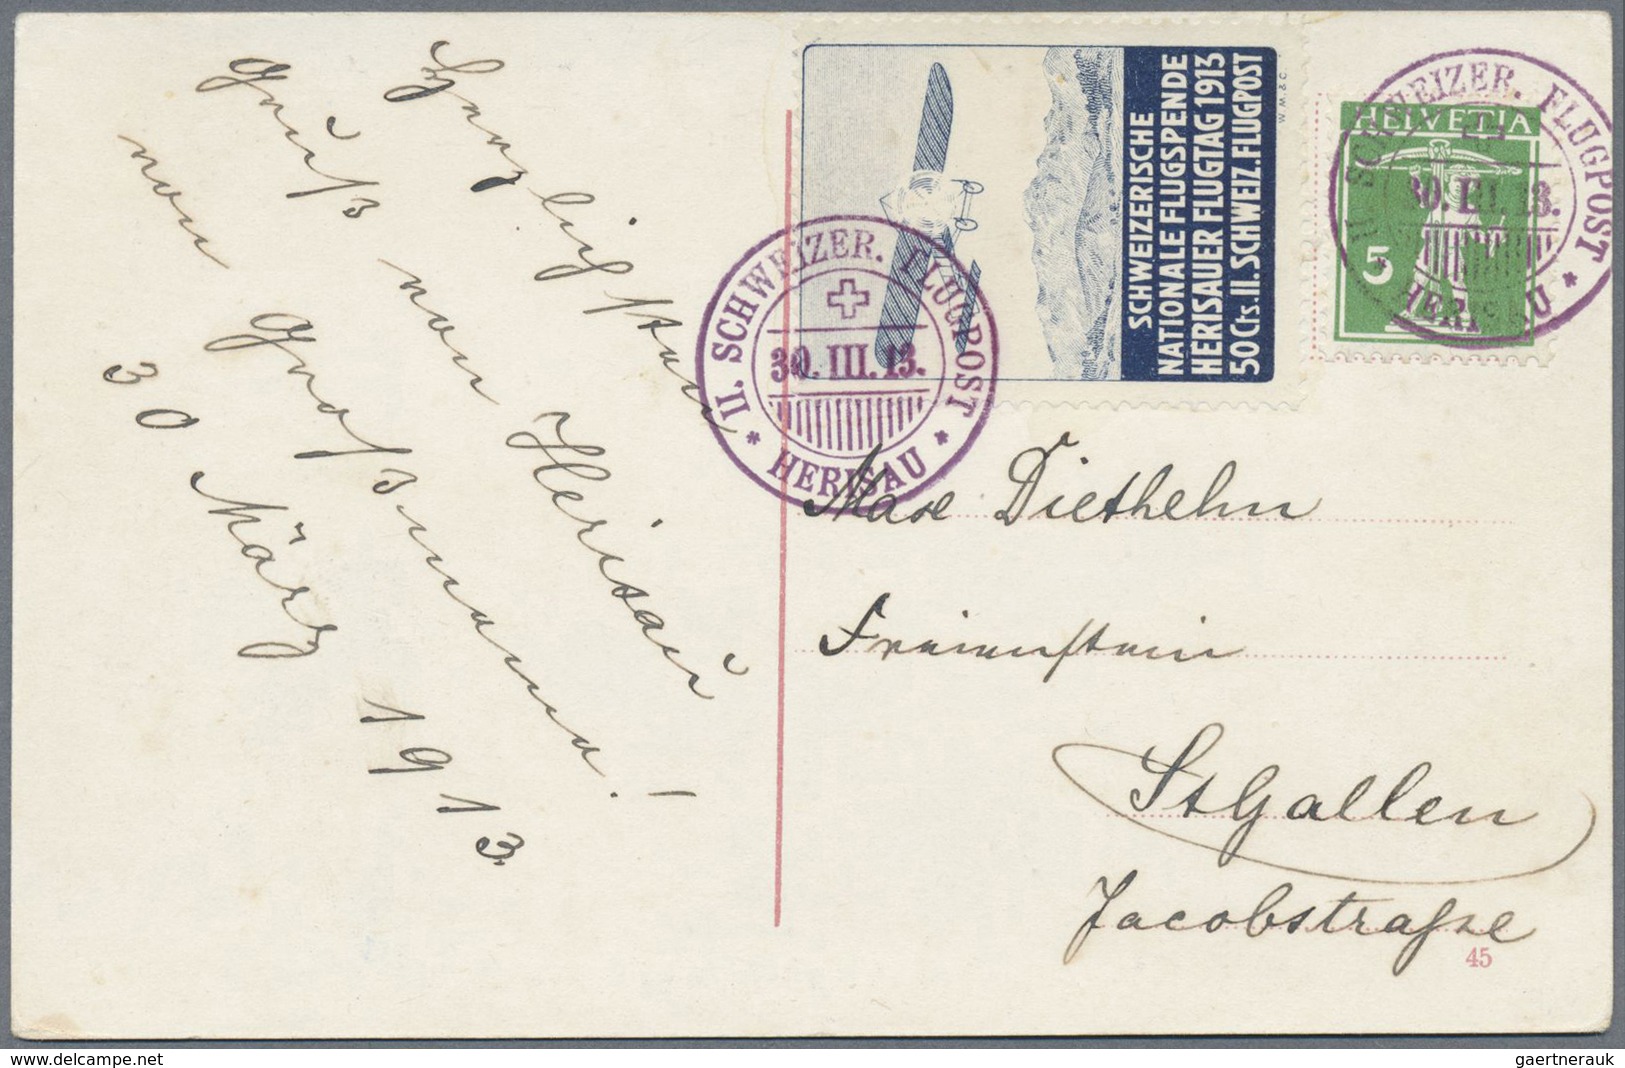 Herzlichsten
Gruß von Herisau
von Großmama!
30 März 1913.
SCHWEIZERISCHE
NATIONALE FLUGSPENDE
HERISAUER FLUGTAG 1913
50 Cts. II. SCHWEIZ. FLUGPOST
W. M. & C.
HELVETIA
5
II. SCHWEIZER. FLUGPOST
30. III. 13.
* HERISAU *
II. SCHWEIZER. FLUGPOST
30. III. 13.
HERISAU *
Max Diethelm
Freienstein
St Gallen
Jacobstraße
45
delcampe.net
gaertnerauk